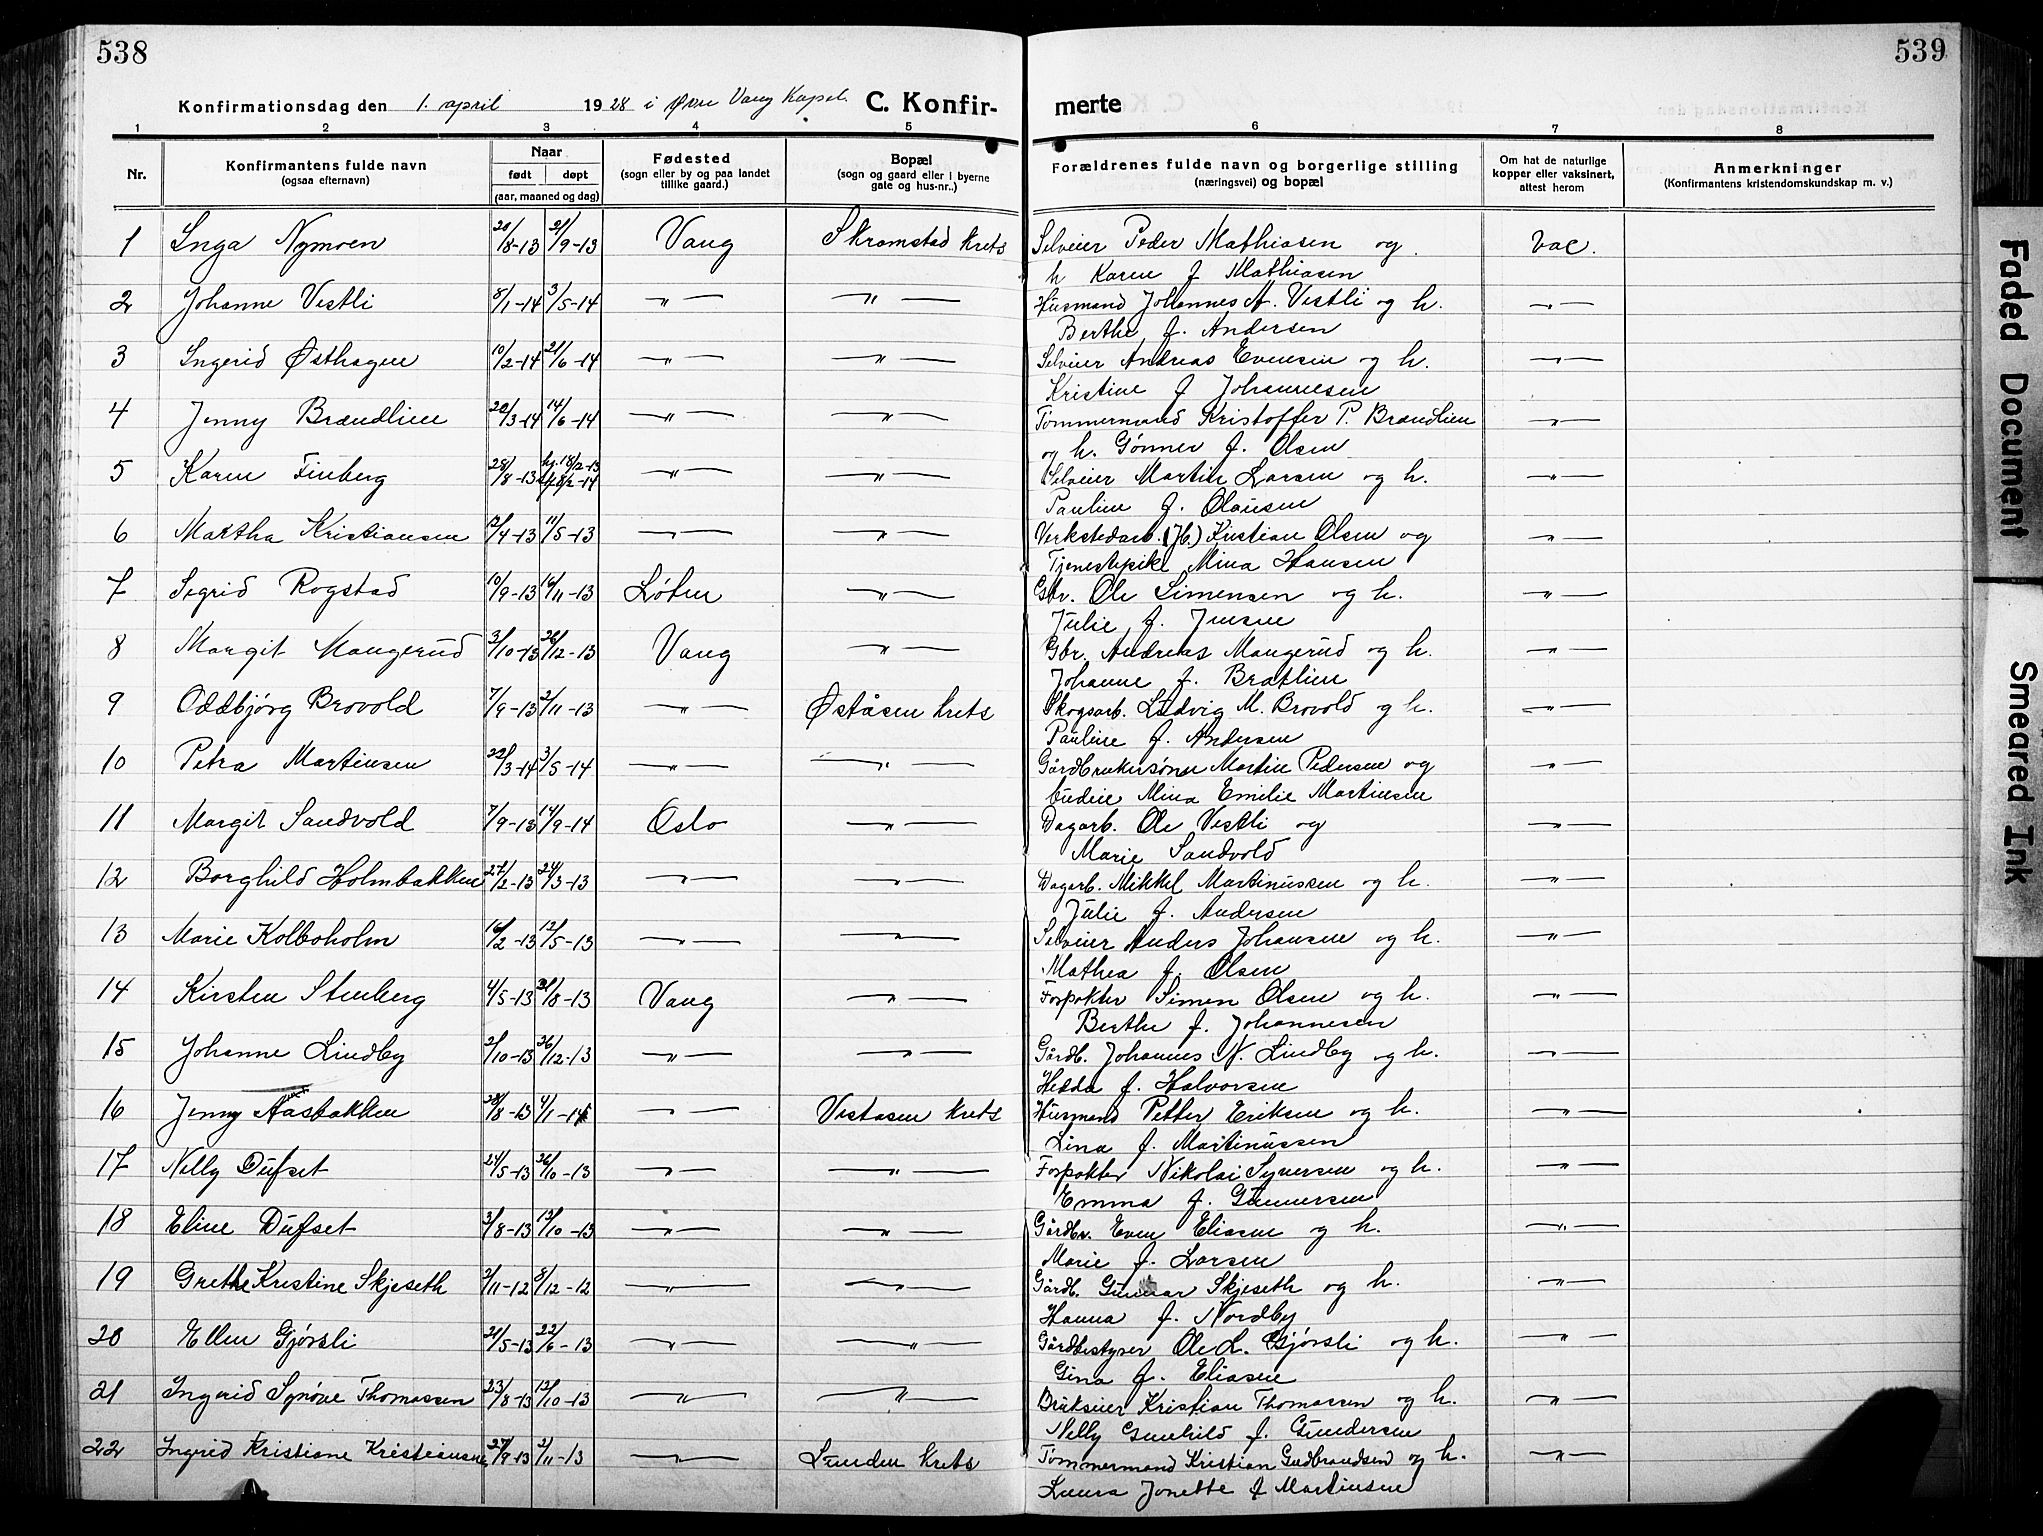 538
539
Konfirmationsdag den 1. april 1928 i Øvre Vang Kapel. C. Konfir-
merte
1 2 3 4 5 6 7 8
Nr. Konfirmantens fulde navn (ogsaa efternavn) Naar født døpt (aar, maaned og dag) Fødested (sogn eller by og paa landet tillike gaard.) Bopæl (sogn og gaard eller i byerne gate og hus-nr..) Forældrenes fulde navn og borgerlige stilling (næringsvei) og bopæl Om hat de naturlige kopper eller vaksinert, attest herom Anmerkninger (Konfirmantens kristendomskundskap m. v.)
1 Inga Nymoen 20/8-13 21/9-13 Vang Skramstad krets Selveier Peder Mathiasen og vac.
h Karen f Mathiasen
2 Johanne Vestli 8/1-14 3/5-14 —"— —"— Husmand Johannes A. Vestli og h. —"—
Berthe f. Andersen
3 Ingerid Østhagen 10/2-14 21/6-14 —"— —"— Selveier Andreas Evensen og h. —"—
Kristine f Johannesen
4 Jenny Brændlien 20/3-14 14/6-14 —"— —"— Tømmermand Kristoffer P. Brændlien —"—
og h. Gønner f. Olsen
5 Karen Finberg 28/8-13 hj. 18/2-13 8/2-14 —"— —"— Selveier Martin Larsen og h. —"—
Pauline f. Olausen
6 Martha Kristiansen 12/4-13 11/5-13 —"— —"— Verkstedarb. (Jb.) Kristian Olsen og —"—
Tjenestepike Mina Hansen
7 Sigrid Rogstad 10/9-13 16/11-13 Løten —"— Gbr. Ole Simensen og h. —"—
Julie f. Jensen
8 Margit Mangerud 3/10-13 26/12-13 Vang —"— Gbr. Andreas Mangerud og h. —"—
Johanne f. Bratlien
9 Oddbjørg Brovold 7/9-13 2/11-13 —"— Øståsen krets Skogsarb. Ludvig M. Brovold og h. —"—
Pauline f. Andersen
10 Petra Martinsen 22/3-14 3/5-14 —"— —"— Gårdbrukersønn Martin Pedersen og —"—
budeie Mina Emilie Martinsen
11 Margit Sandvold 7/9-13 14/9-14 Oslo —"— Dagarb. Ole Vestli og —"—
Marie Sandvold
12 Borghild Holmbakken 27/2-13 24/3-13 —"— —"— Dagarb. Mikkel Martinussen og h. —"—
Julie f. Andersen
13 Marie Kolboholm 16/2-13 12/5-13 —"— —"— Selveier Anders Johansen og h. —"—
Mathea f. Olsen
14 Kirsten Stenberg 4/5-13 31/8-13 Vang —"— Forpakter Simen Olsen og h. —"—
Berthe f. Johannesen
15 Johanne Lindby 2/10-13 26/12-13 —"— —"— Gårdb. Johannes N. Lindby og h. —"—
Hedda f. Halvorsen
16 Jenny Aasbakken 28/8-13 4/1-14 —"— Vestasen krets Husmand Petter Eriksen og h. —"—
Lina f. Martinussen
17 Nelly Dufset 24/5-13 26/10-13 —"— —"— Forpakter Nikolai Syversen og h. —"—
Emma f. Gunnersen
18 Eline Dufset 3/8-13 13/10-13 —"— —"— Gårdbr. Even Eliasen og h. —"—
Marie f. Larsen
19 Grethe Kristine Skjeseth 2/11-12 8/12-12 —"— —"— Gårdb. Gunnar Skjeseth og h. —"—
Hanna f. Nordby
20 Ellen Gjørsli 21/5-13 22/6-13 —"— —"— Gårdbestyrer Ole L. Gjørsli og h. —"—
Gina f. Eliasen
21 Ingerid Synøve Thomassen 23/8-13 12/10-13 —"— —"— Brukseier Kristian Thomassen og h. —"—
Nelly Gunhild f. Gundersen
22 Ingerid Kristiane Kristiansen 27/9-13 2/11-13 —"— Lunden krets Tømmermand Kristian Gudbrandsen og h. —"—
Laura Jonette f Martinsen
Faded Document
Smeared Ink